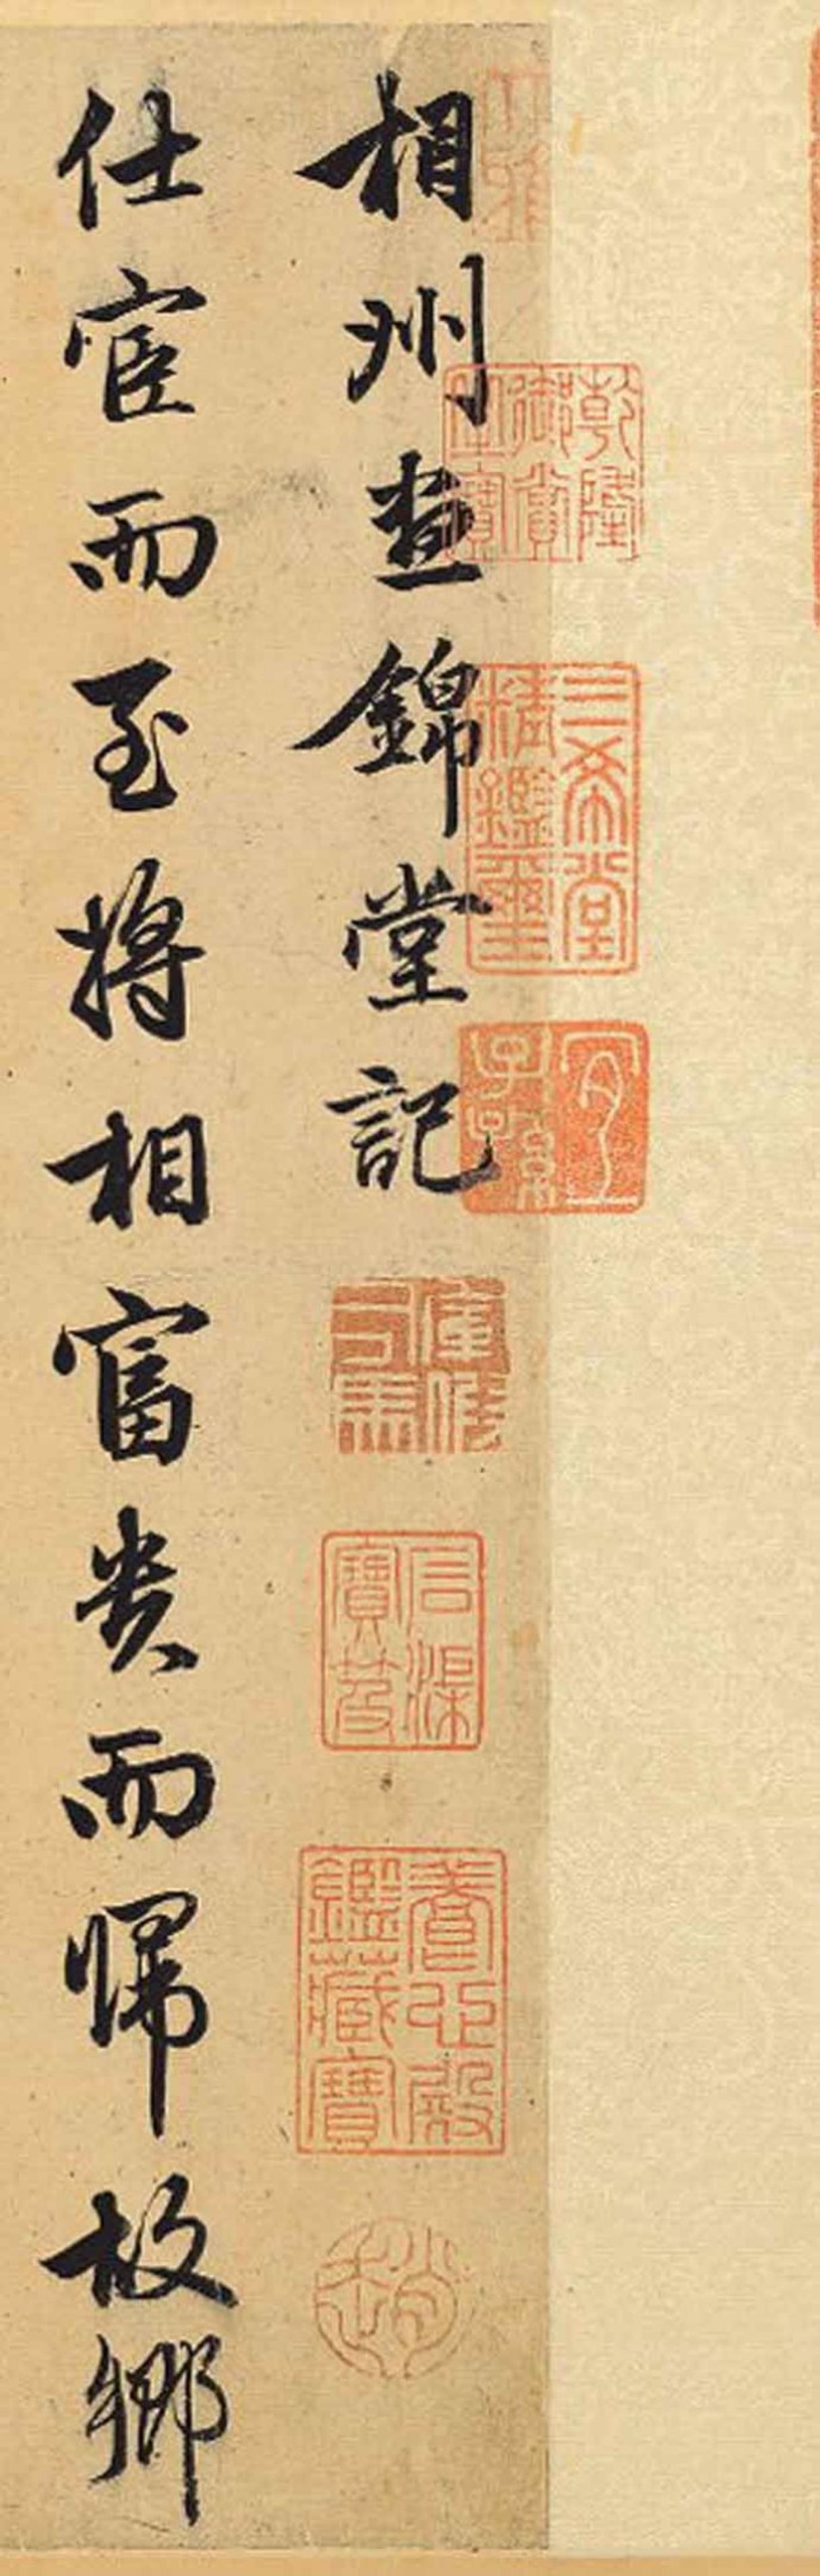 相州晝錦堂記
仕宦而至將相富貴而歸故鄉
乾隆御賞之寶
三希堂精鑑璽
宜子孫
石渠寶笈
養心殿鑑藏寶
趙